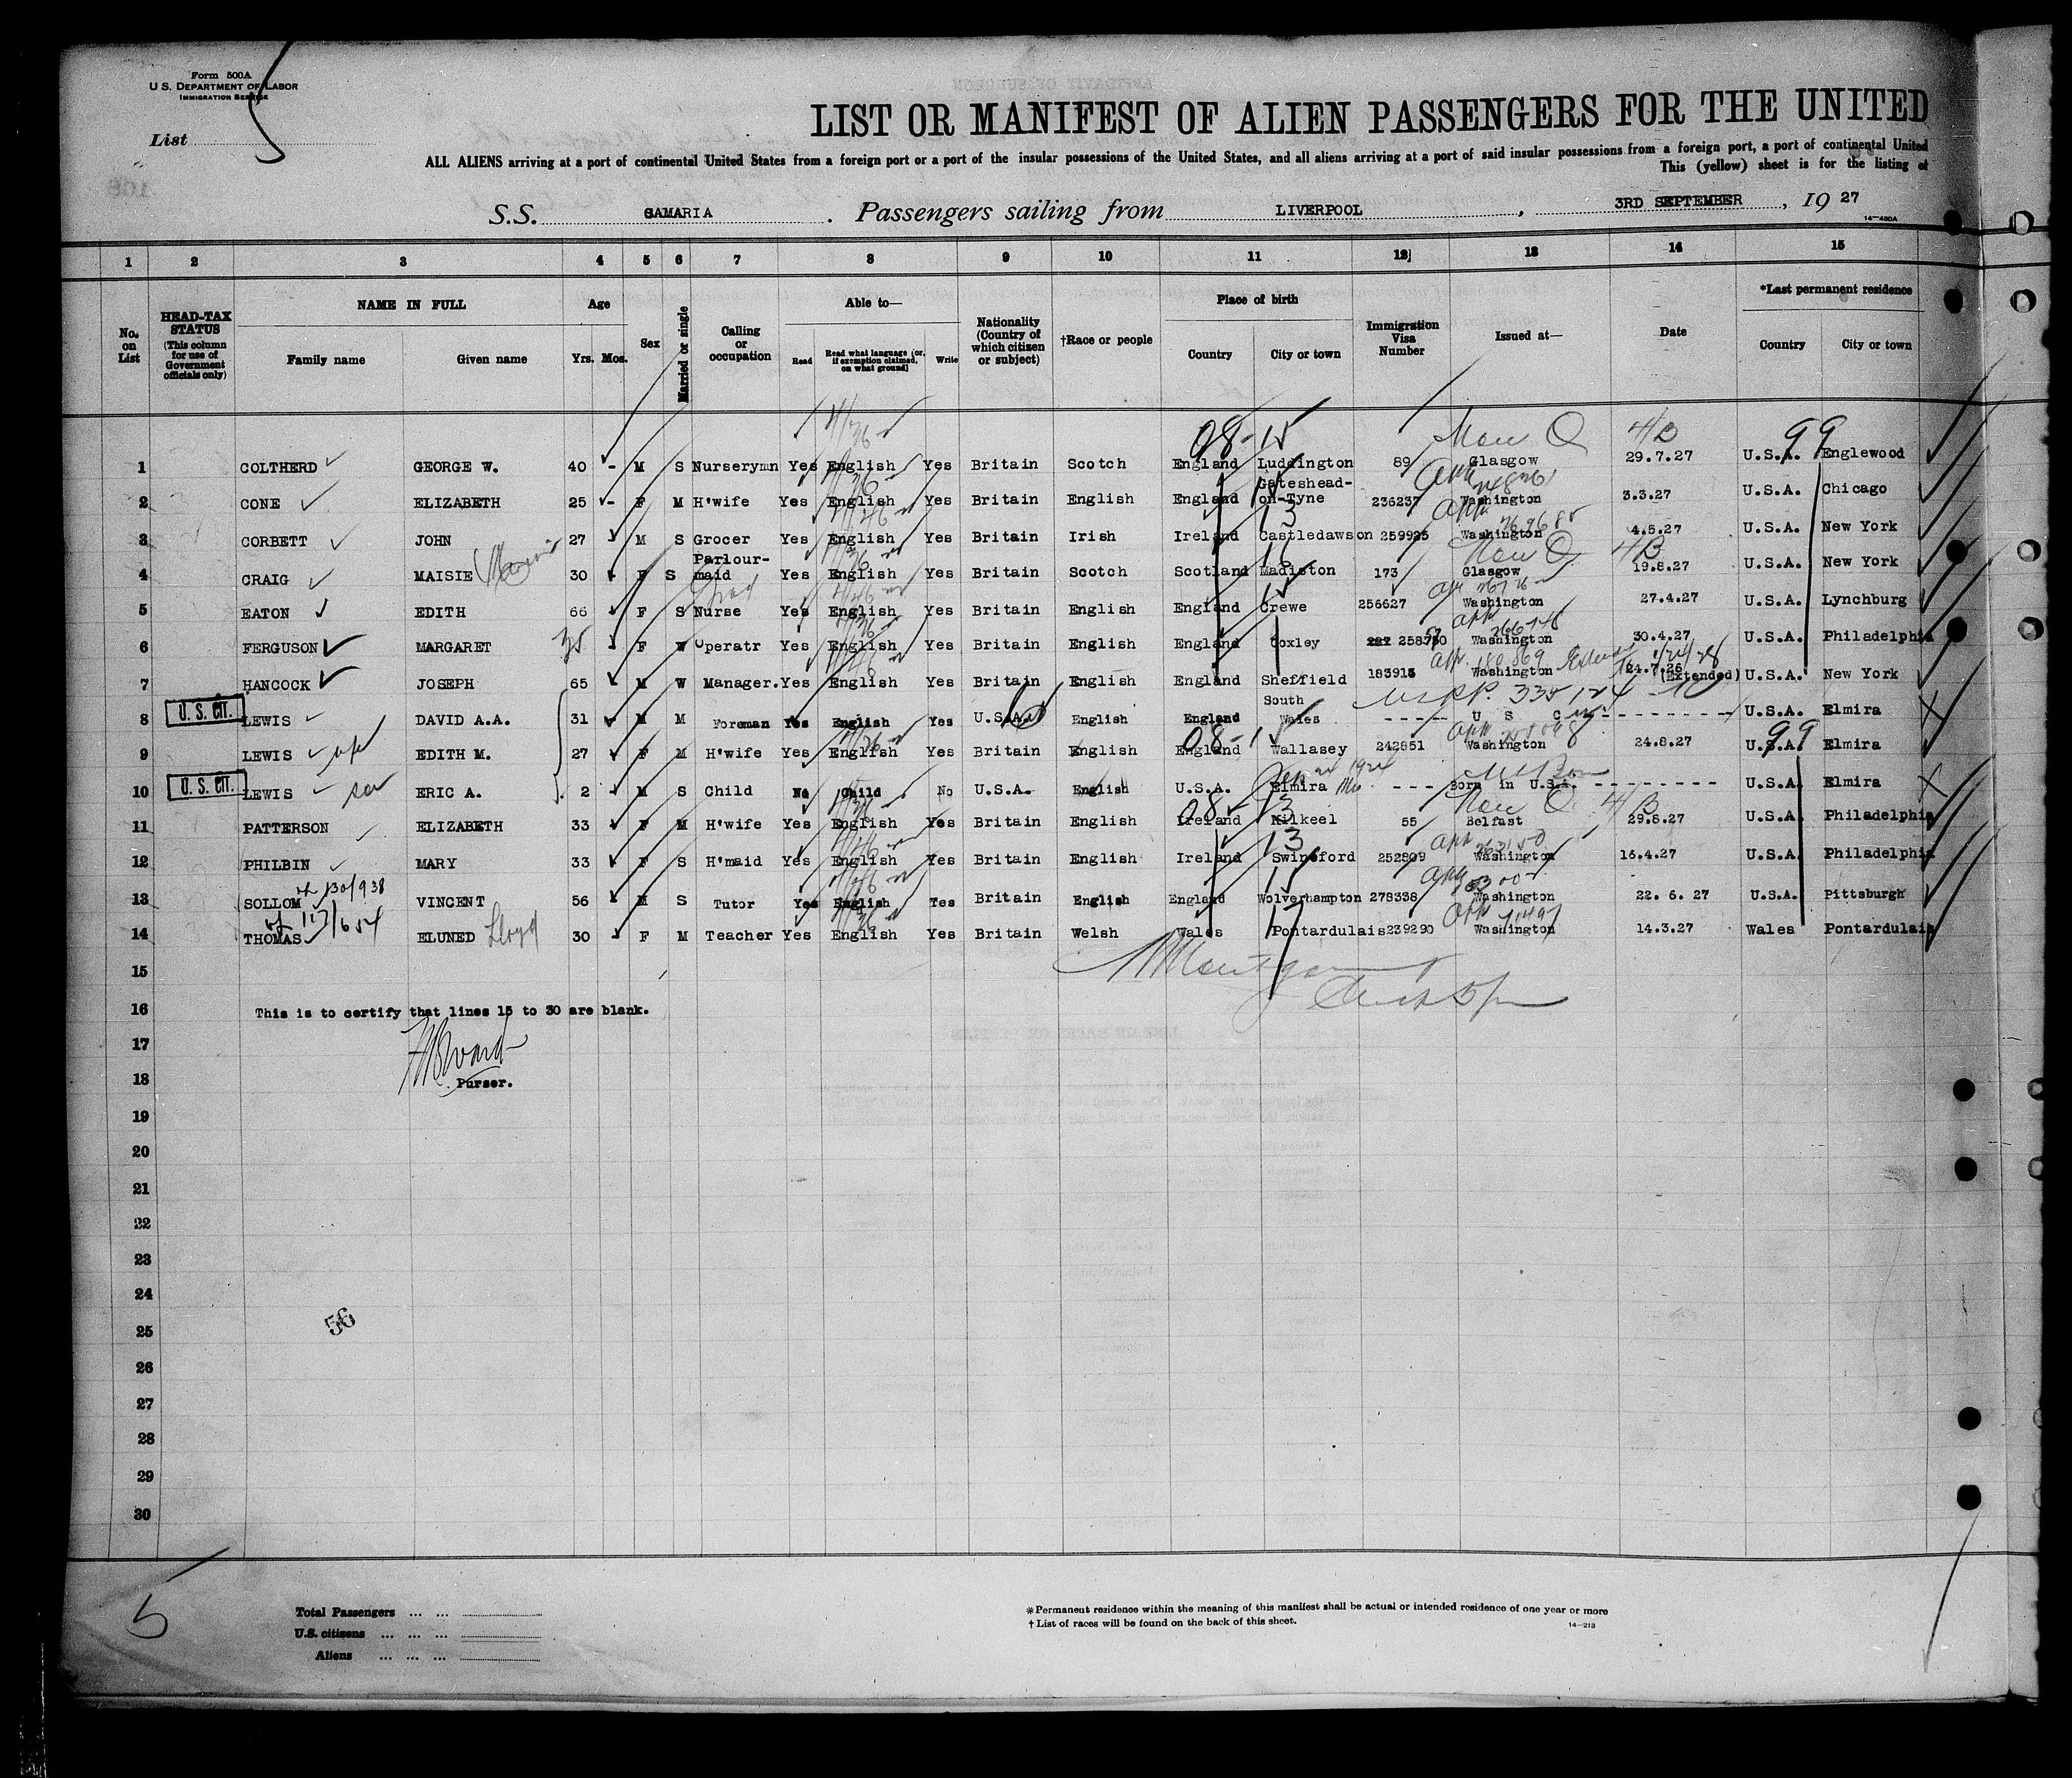 Form 500A
U.S. DEPARTMENT OF LABOR
IMMIGRATION SERVICE
List 5
LIST OR MANIFEST OF ALIEN PASSENGERS FOR THE UNITED
ALL ALIENS arriving at a port of continental United States from a foreign port or a port of the insular possessions of the United States, and all aliens arriving at a port of said insular possessions from a foreign port, a port of continental United
This (yellow) sheet is for the listing of
S.S. SAMARIA. Passengers sailing from LIVERPOOL, 3RD SEPTEMBER, 1927
14—430A
1 2 3 4 5 6 7 8 9 10 11 12 13 14 15
No. on List
HEAD-TAX STATUS (This column for use of Government officials only)
NAME IN FULL Family name Given name
Age Yrs. Mos.
Sex
Married or single
Calling or occupation
Able to— Read Read what language (or, if exemption claimed, on what ground) Write
Nationality (Country of which citizen or subject)
†Race or people
Place of birth Country City or town
Immigration Visa Number
Issued at—
Date
*Last permanent residence Country City or town
08-15 Non Q 4B 99
1 COLTHERD GEORGE W. 40 - M S Nurserymn Yes English Yes Britain Scotch England Luddington 89 Glasgow 29.7.27 U.S.A. Englewood
2 CONE ELIZABETH 25 - F M H'wife Yes English Yes Britain English England Gateshead-on-Tyne 236237 Washington 3.3.27 U.S.A. Chicago
3 CORBETT JOHN 27 M S Grocer Yes English Yes Britain Irish Ireland Castledawson 259925 Washington 4.5.27 U.S.A. New York
4 CRAIG MAISIE 30 F S Parlour-maid Yes English Yes Britain Scotch Scotland Madiston 173 Glasgow 19.8.27 U.S.A. New York
5 EATON EDITH 66 F S Nurse Yes English Yes Britain English England Crewe 256627 Washington 27.4.27 U.S.A. Lynchburg
6 FERGUSON MARGARET 35 F W Operatr Yes English Yes Britain English England Coxley Washington 30.4.27 U.S.A. Philadelphia
7 HANCOCK JOSEPH 65 M W Manager. Yes English Yes Britain English England Sheffield 183915 Washington 24.7.26 (Extended) U.S.A. New York
U.S. CIT.
8 LEWIS DAVID A.A. 31 M M Foreman Yes English Yes U.S.A. English England South Wales - - - - - U S C - - - - - U.S.A. Elmira
9 LEWIS EDITH M. 27 F M H'wife Yes English Yes Britain English England Wallasey 242851 Washington 24.8.27 U.S.A. Elmira
U.S. CIT.
10 LEWIS ERIC A. 2 - M S Child No Child No U.S.A. English U.S.A. Elmira - - - Born in U.S.A. - - - - - - - - U.S.A. Elmira
11 PATTERSON ELIZABETH 33 F M H'wife Yes English Yes Britain English Ireland Kilkeel 55 Belfast 29.8.27 U.S.A. Philadelphia
12 PHILBIN MARY 33 F S H'maid Yes English Yes Britain English Ireland Swineford 252809 Washington 16.4.27 U.S.A. Philadelphia
13 SOLLOM VINCENT 56 M S Tutor Yes English Yes Britain English England Wolverhampton 278338 Washington 22. 6. 27 U.S.A. Pittsburgh
14 THOMAS ELUNED Lloyd 30 - F M Teacher Yes English Yes Britain Welsh Wales Pontardulais 239290 Washington 14.3.27 Wales Pontardulais
15
16 This is to certify that lines 15 to 30 are blank.
17
18 Purser.
19
20
21
22
23
24
25 56
26
27
28
29
30
5
Total Passengers ... ...
U.S. citizens ... ... ...
Aliens ... ... ...
*Permanent residence within the meaning of this manifest shall be actual or intended residence of one year or more
†List of races will be found on the back of this sheet.
14—213